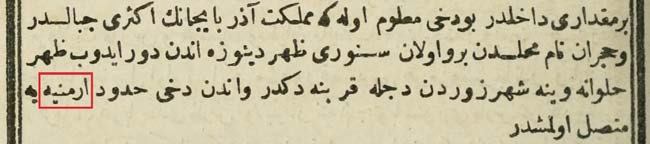 برمقداری داخلدر بودخی معلوم اوله كه مملكت آذربایجانك اكثری جبالـــدر
وحجران نام محلـدن برو اولان ســنوری ظهر دینوره اندن دور ایدوب ظهر
حلوانه وینه شهرزوردن دجله قربنه دكدر واندن دخی حدود ارمنیه یه
متصل اولمشدر